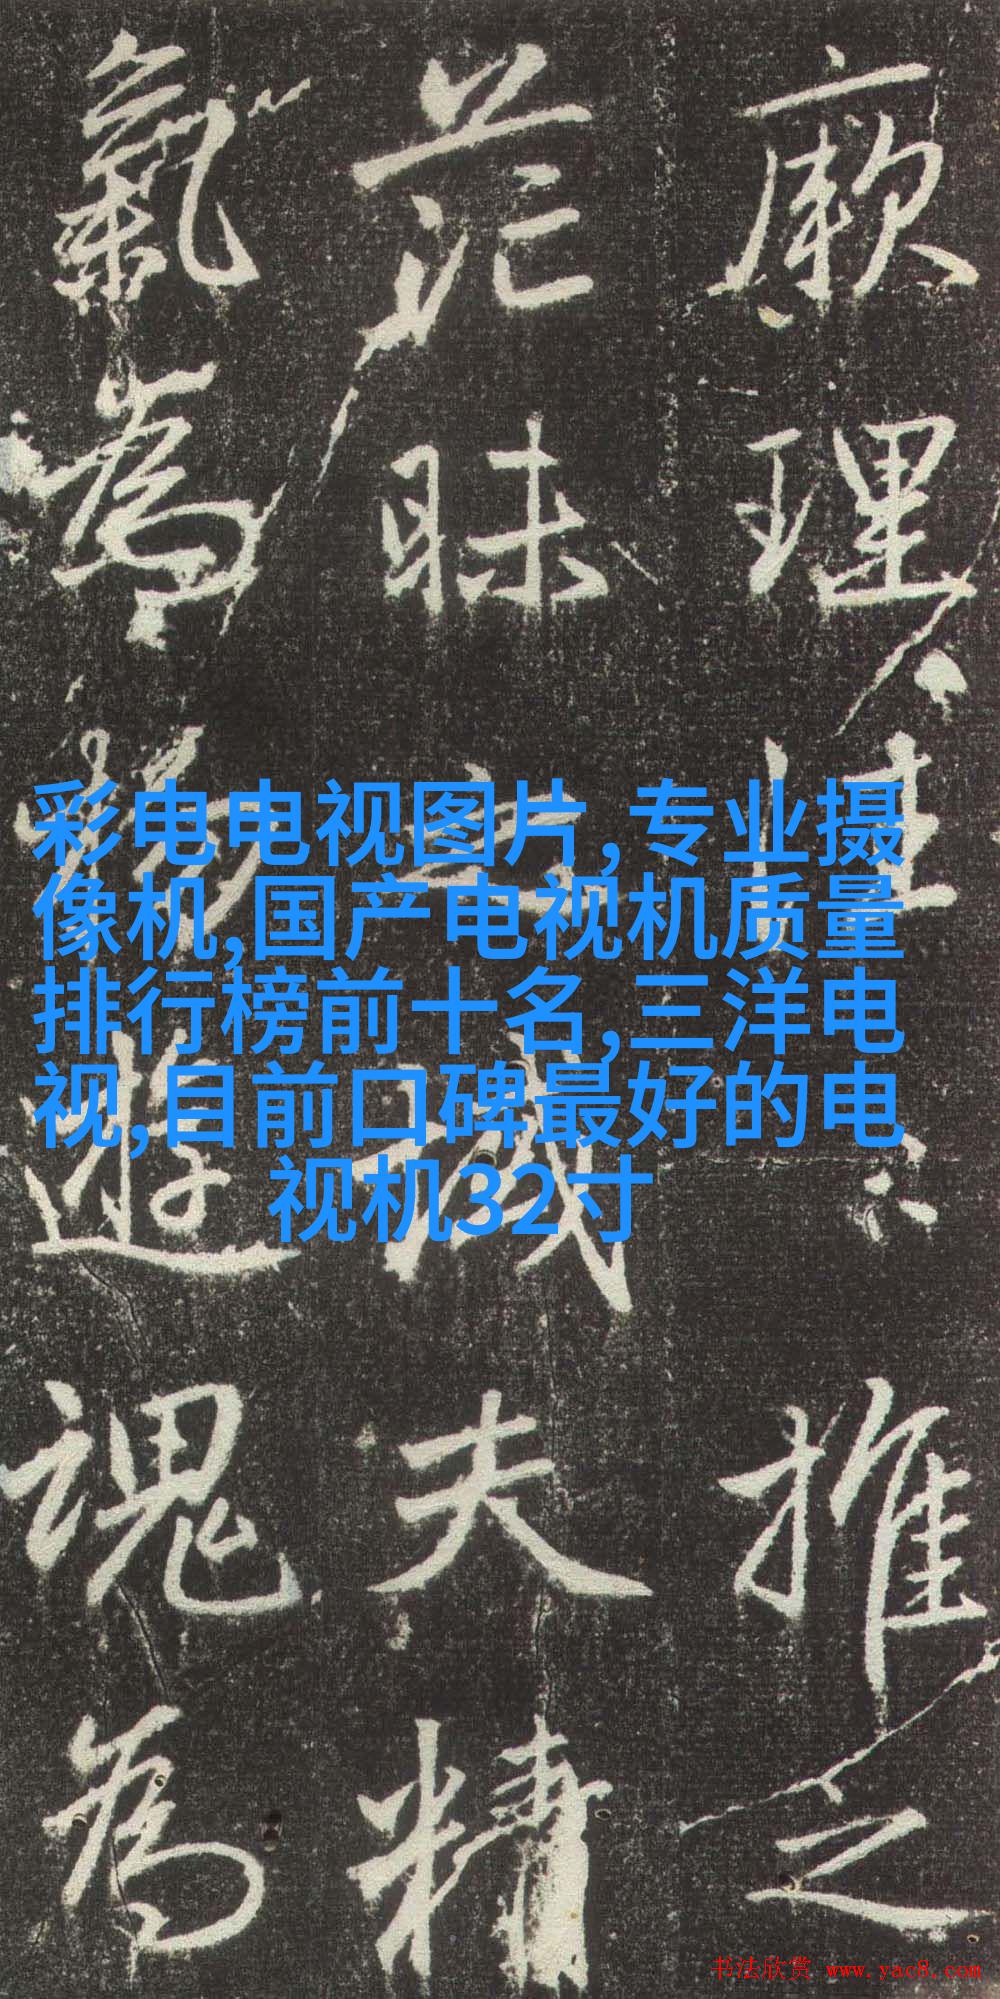 厥理推之
茫昧夫精
氣為物遊魂為
彩电电视图片,专业摄
像机,国产电视机质量
排行榜前十名,三洋电
视,目前口碑最好的电
视机32寸
书法欣赏 www.yac8.com